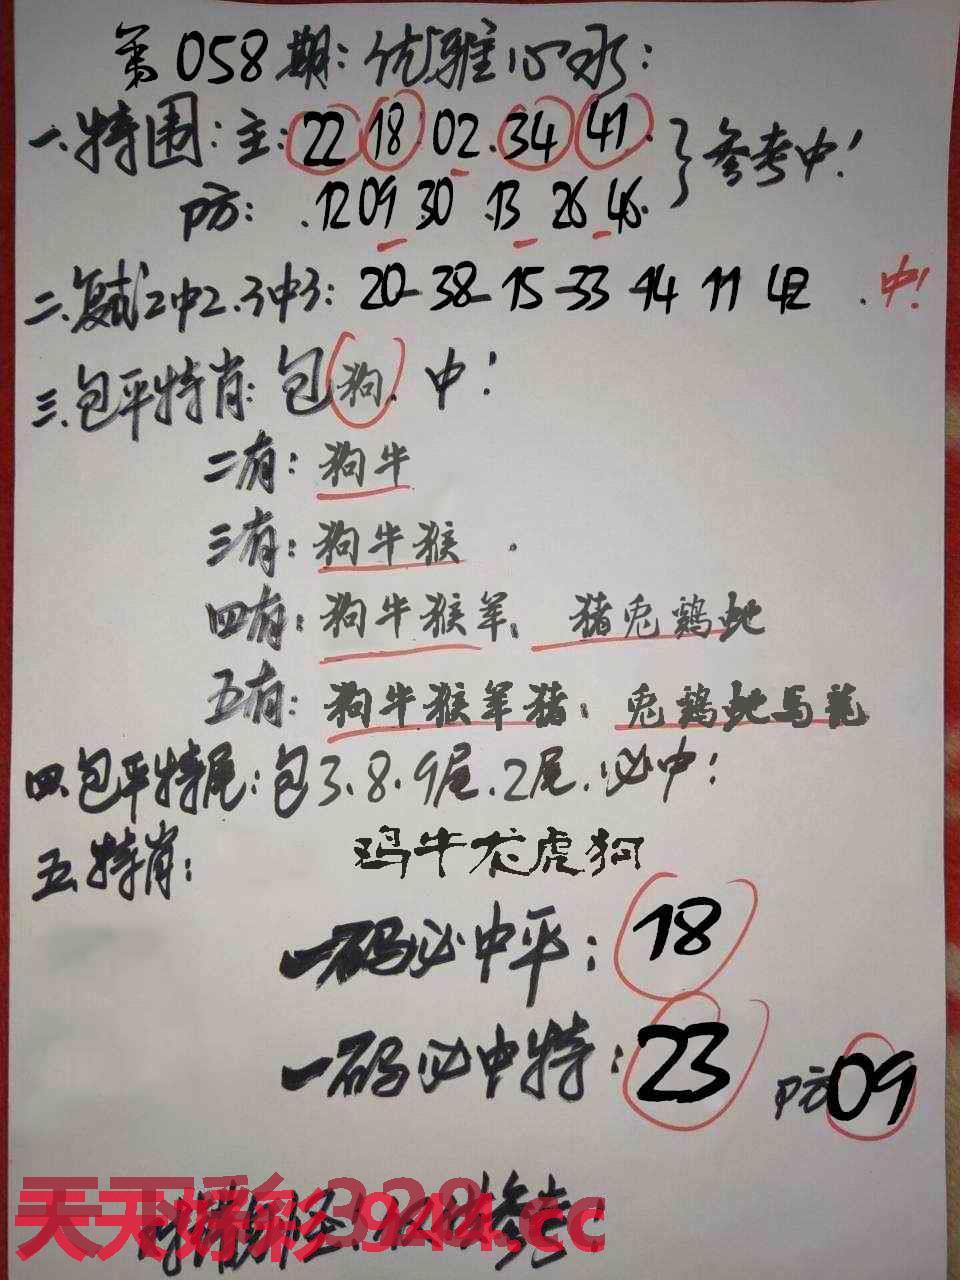 第058期:优雅心水:
一.特围:主:22 18 02 34 41. 参考中!
防: .12 09 30 .13 26 46.
二.复试2中2.3中3: 20-38-15-33-14 11 42 .中!
三.包平特肖:包狗.中!
二有:狗牛
三有:狗牛猴.
四有:狗牛猴羊、猪兔鸡蛇
五有:狗牛猴羊猪;兔鸡蛇马龙
四.包平特尾:包3.8.9尾.2尾.必中!
五.特肖: 鸡牛龙虎狗
一码必中平: 18
一码必中特: 23 防09
天天好彩 参考
944.cc